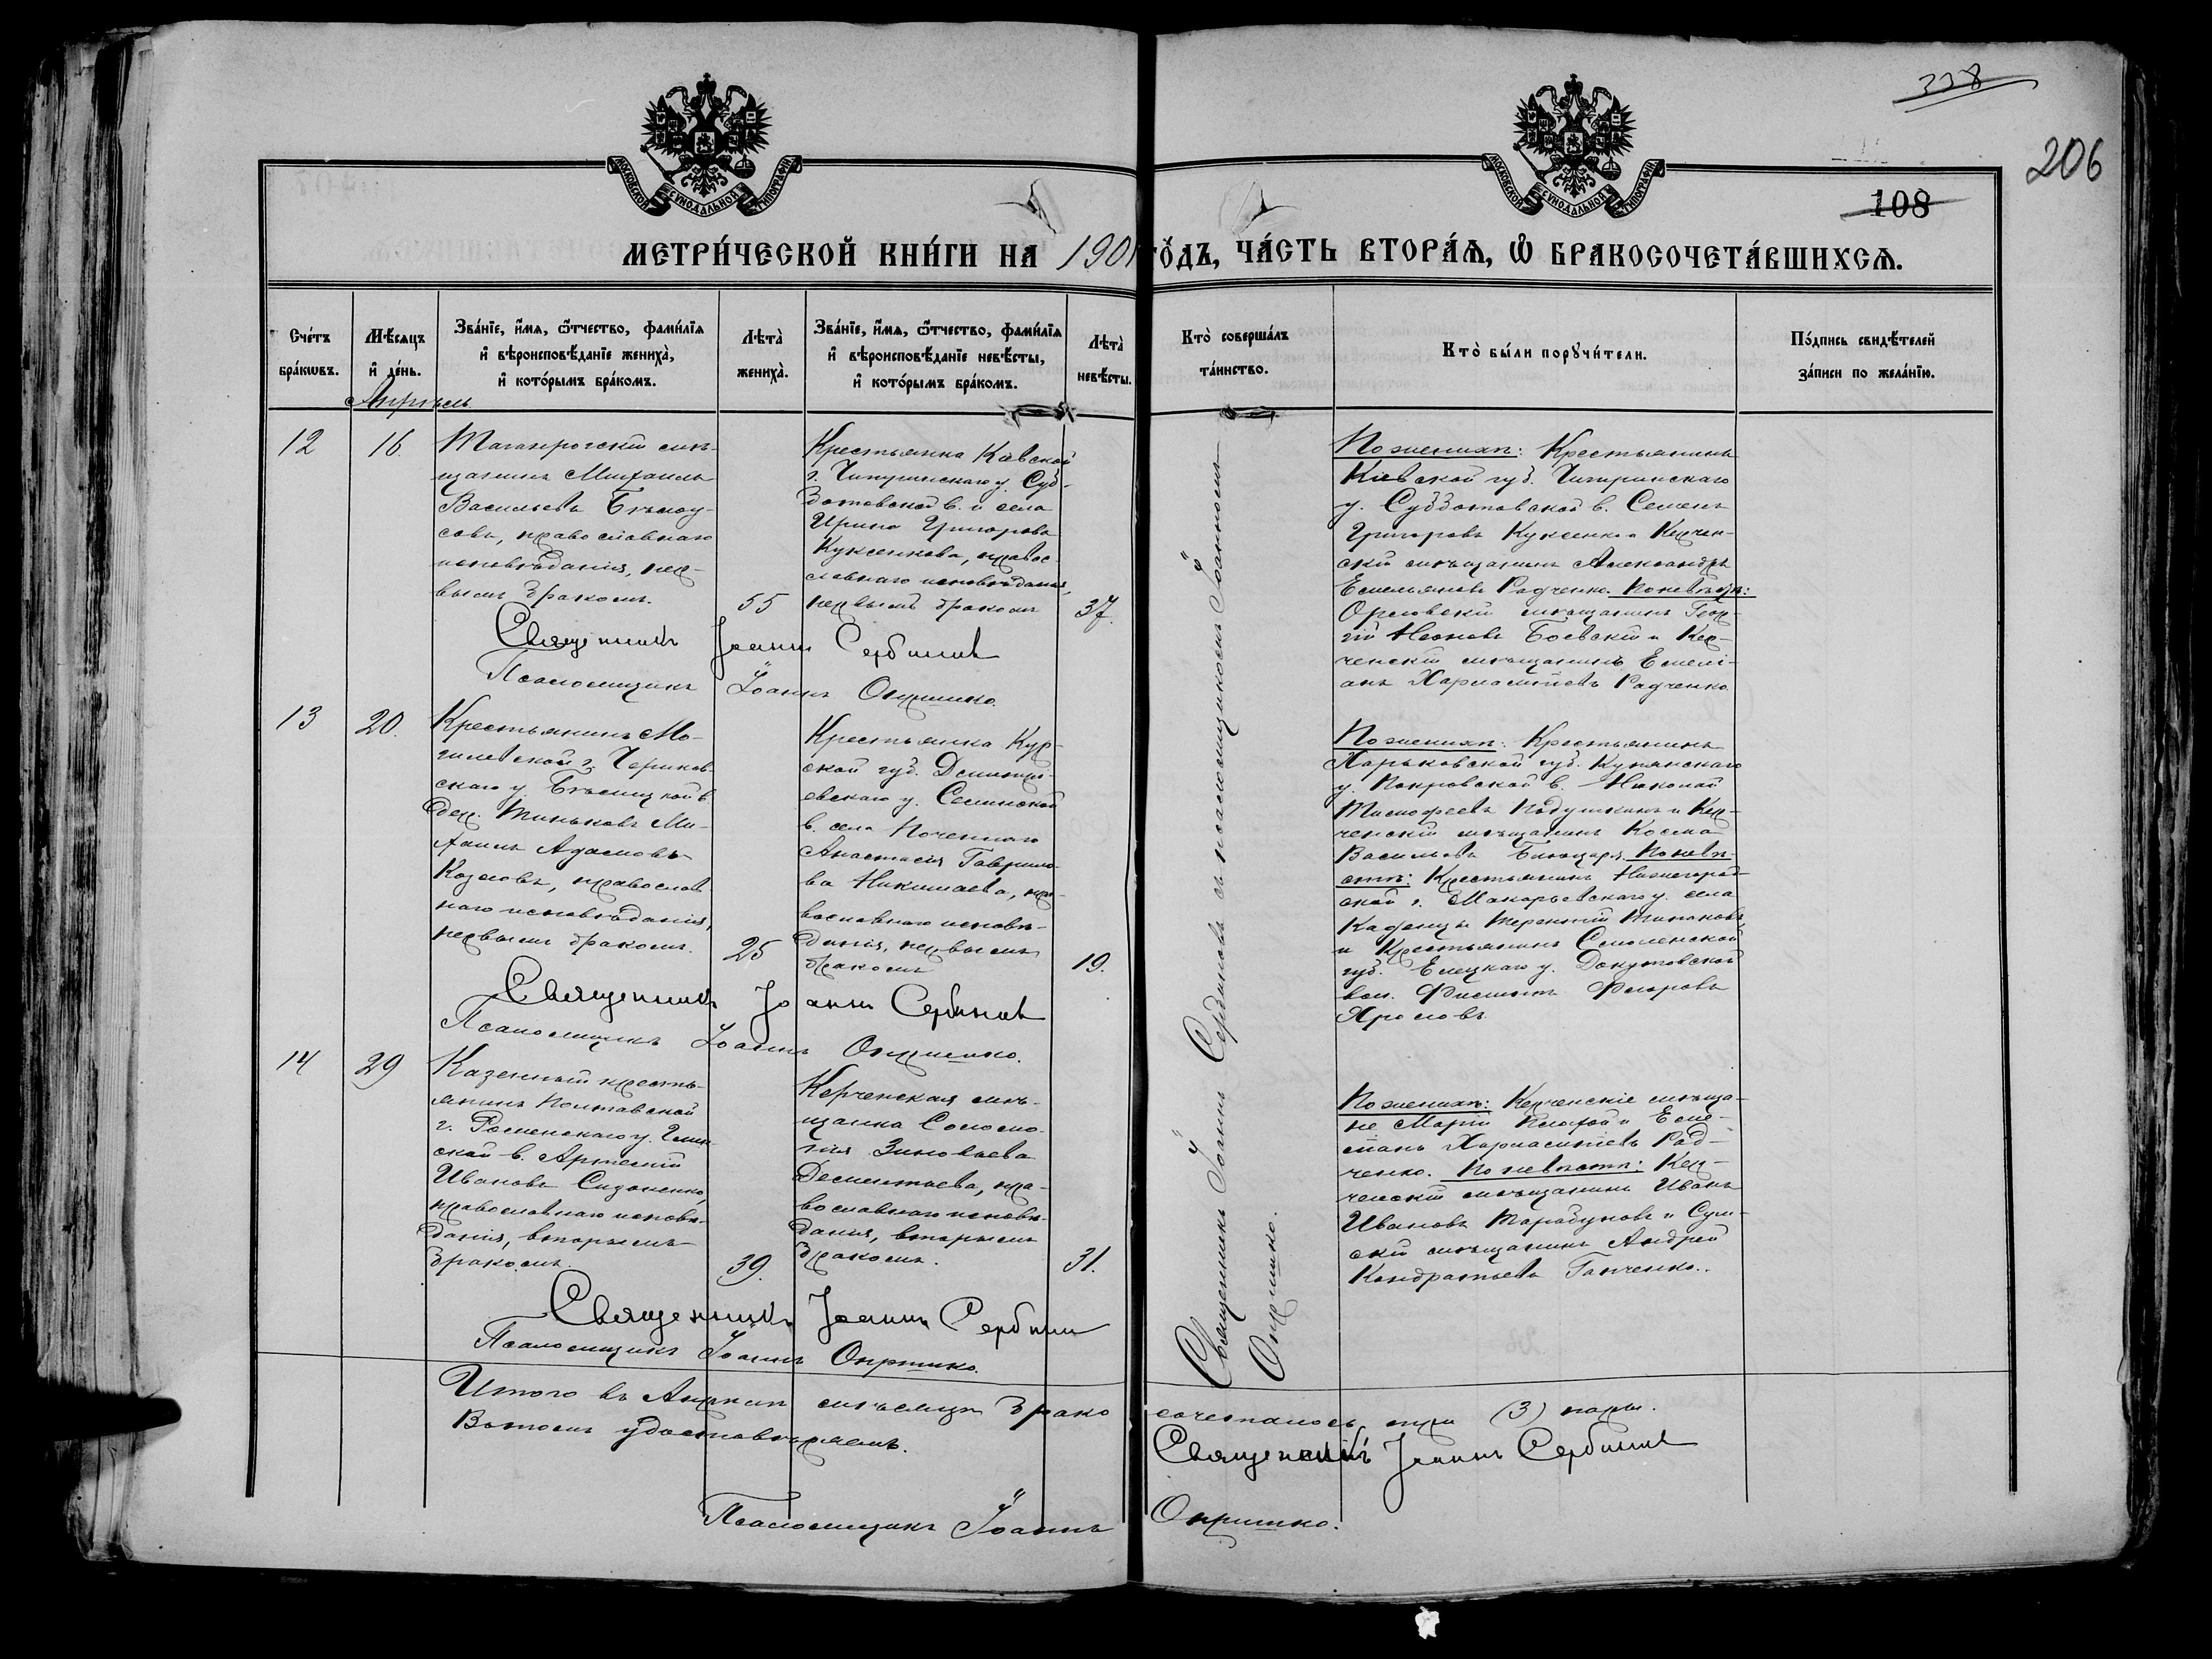 338
206
108
МОСКОВСКОЙ СѴНОДАЛЬНОЙ ТИПОГРАФІИ
МОСКОВСКОЙ СѴНОДАЛЬНОЙ ТИПОГРАФІИ
МЕТРИ́ЧЕСКОЙ КНИ́ГИ НА 1901 ГО́ДЪ, ЧА́СТЬ ВТОРА́Ѧ, Ѽ БРАКОСОЧЕТА́ВШИХСѦ.
Сче́тъ бра́кѡвъ.
Мѣ́сѧцъ и҆ де́нь.
Зва́нїе, и҆́мѧ, ѻ҆́тчество, фами́лїѧ
и҆ вѣроисповѣ́данїе жениха̀,
и҆ кото́рымъ бра́комъ.
Лѣта̀ жениха̀.
Зва́нїе, и҆́мѧ, ѻ҆́тчество, фами́лїѧ
и҆ вѣроисповѣ́данїе невѣ́сты,
и҆ кото́рымъ бра́комъ.
Лѣта̀ невѣ́сты.
Кто̀ соверша́лъ
та́инство.
Кто̀ бы́ли порꙋчи́тели.
По́дпись свидѣ́телей
за́писи по жела́нїю.
Апрѣль.
12
16.
Таганрогскій мѣ-
щанинъ Михаилъ
Васильевъ Бѣлоу-
совъ, православнаго
исповѣданія, пер-
вымъ бракомъ.
55
Крестьянка Кіевской
г. Чигиринскаго у. Суб-
ботовской в. и села
Ирина Григорова
Куксенкова, правос-
лавнаго исповѣданія,
первымъ бракомъ
37.
По женихѣ: Крестьянинъ
Кіевской губ. Чигиринскаго
у. Субботовской в. Семенъ
Григоровъ Куксенко и Керчен-
скій мѣщанинъ Александръ
Емельяновъ Радченко. По невѣстѣ:
Орловскій мѣщанинъ Геор-
гій Іоновъ Боевскій и Кер-
ченскій мѣщанинъ Емелі-
анъ Харлампіевъ Радченко.
Священникъ Іоаннъ Сербиновъ
Псаломщикъ Іоаннъ Опришко.
13
20.
Крестьянинъ Мо-
гилевской г. Чериков-
скаго у. Бѣлицкой в.
дер. Тиньковъ Ми-
хаилъ Адамовъ
Козловъ, православ
наго исповѣданія,
первымъ бракомъ.
25
Крестьянка Кур-
ской губ. Дмитрі-
евскаго у. Селинской
в. села Поченнаго
Анастасія Гаврило-
ва Николаева, пра-
вославнаго исповѣ-
данія, первымъ
бракомъ
19.
По женихѣ: Крестьянинъ
Харьковской губ. Купянскаго
у. Покровской в. Николай
Тимофеевъ Подушкинъ и Кер-
ченскій мѣщанинъ Косма
Васильевъ По невѣ-
стѣ: Крестьянинъ Нижегород-
ской г. Макарьевскаго у. села
Терентій
и Крестьянинъ Смоленской
губ. Елецкаго у.
вол. Филиппъ Фроловъ
Священникъ Іоаннъ Сербиновъ
Псаломщикъ Іоаннъ Опришко.
14
29
Казенный кресть-
янинъ Полтавской
г. Роменскаго у. Глин-
ской в. Артемій
Ивановъ Сидоренко,
православнаго исповѣ-
данія, вторымъ
бракомъ.
39.
Керченская мѣ-
щанка Соломо-
нія Зиновьева
Дементьева, пра-
вославнаго исповѣ-
данія, вторымъ
бракомъ.
31.
По женихѣ: Керченскіе мѣща-
не и Еме-
ліанъ Харлампіевъ Рад-
ченко. По невѣстѣ: Кер-
ченскій мѣщанинъ Иванъ
Ивановъ Тарабуновъ и Сум-
скій мѣщанинъ Андрей
Кондратьевъ Ганченко.
Священникъ Іоаннъ Сербиновъ
Псаломщикъ Іоаннъ Опришко.
Священникъ Іоаннъ Сербиновъ съ псаломщикомъ Іоанномъ
Опришко.
Итого въ Апрѣлѣ мѣсяцѣ брако сочеталось три (3) пары.
Въ томъ удостовѣряемъ.
Священникъ Іоаннъ Сербиновъ
Псаломщикъ Іоаннъ Опришко.